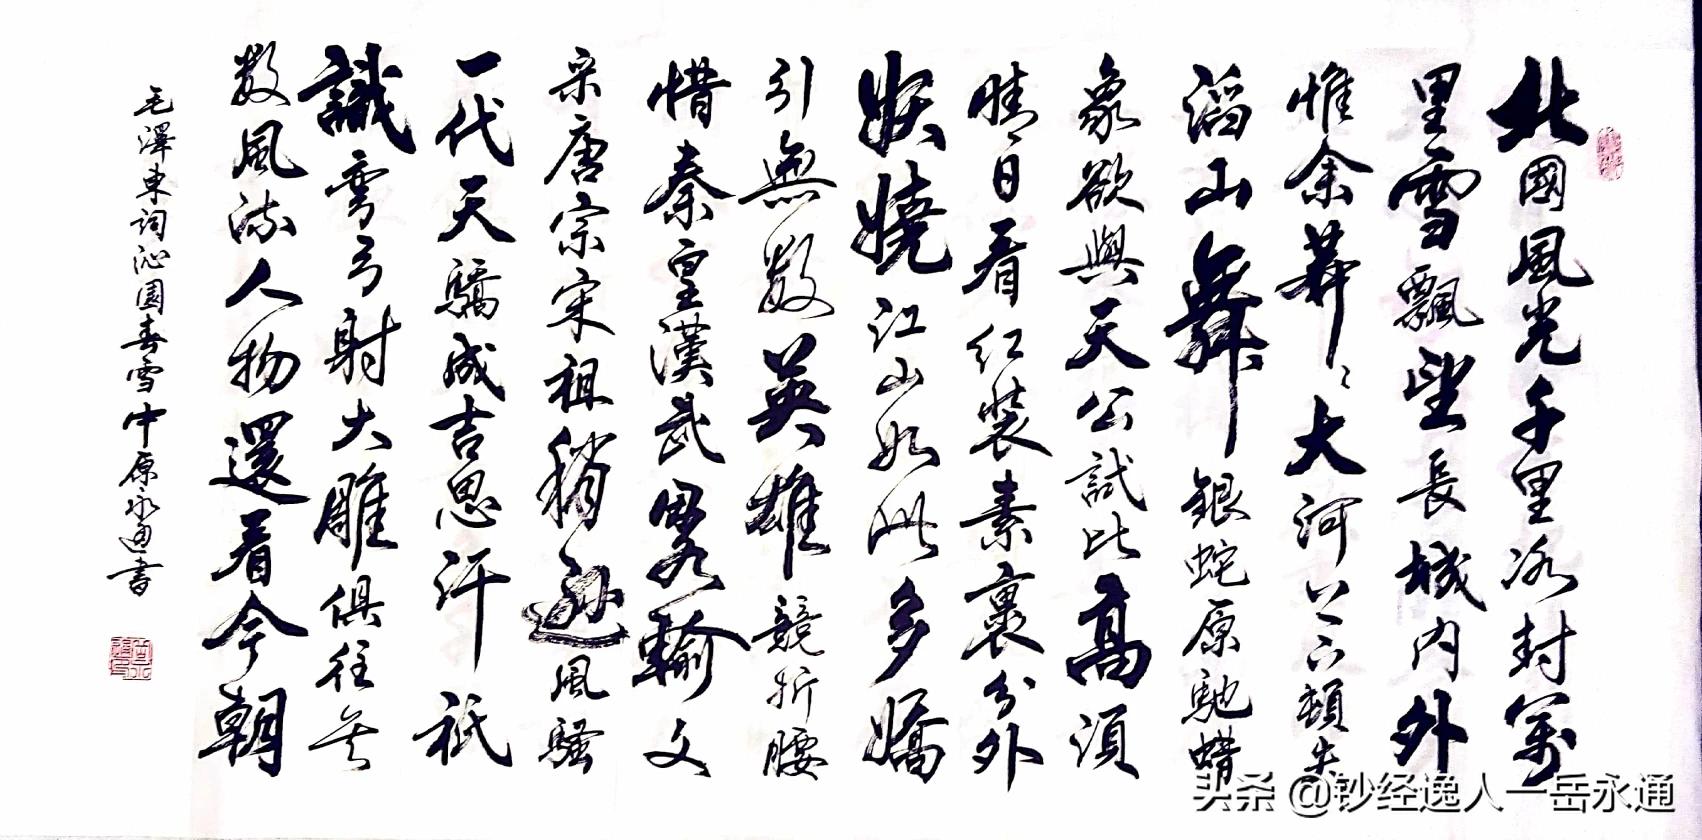 北國風光千里冰封萬
里雪飄望長城内外
惟余莽〻大河上下頓失
滔山舞銀蛇原馳蠟
象欲與天公試比高須
晴日看红裝素裹分外
妖嬈江山如此多嬌
引無數英雄競折腰
惜秦皇漢武畧輸文
采唐宗宋祖稍遜風騷
一代天驕成吉思汗祇
識彎弓射大雕俱往矣
數風流人物還看今朝
毛澤東詞沁園春雪中原永通書
头条 @钞经逸人一岳永通